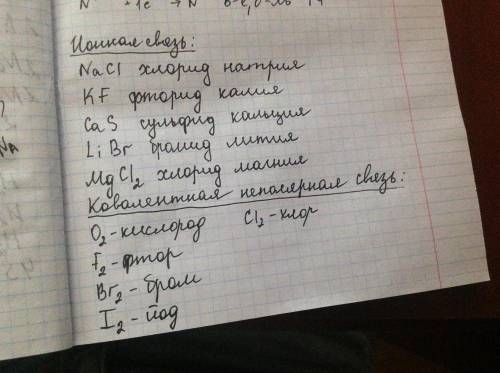 Ионная связь:
NaCl хлорид натрия
KF фторид калия
CaS сульфид кальция
LiBr бромид лития
MgCl₂ хлорид магния
Ковалентная неполярная связь:
O₂ - кислород Cl₂ - хлор
F₂ - фтор
Br₂ - бром
I₂ - йод